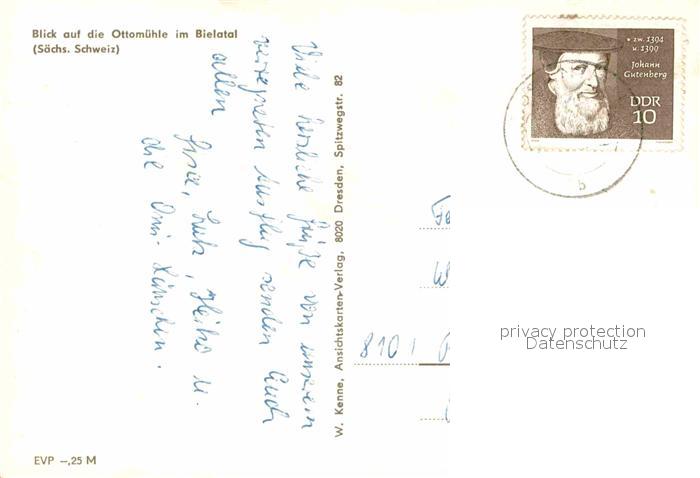 Blick auf die Ottomühle im Bielatal
(Sächs. Schweiz)
Viele herzliche Grüße von unserem
verregneten Ausflug senden Euch
allen
Lutz, Heiko u.
die Omi
W. Kenne, Ansichtskarten-Verlag, 8020 Dresden, Spitzwegstr. 82
* zw. 1394
u. 1399
Johann
Gutenberg
DDR
10
b
8101
privacy protection
Datenschutz
EVP –,25 M